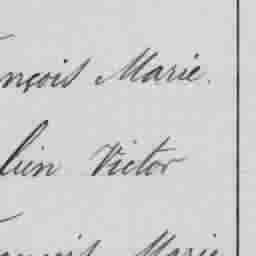 nçois Marie.
lien Victor
ançois Marie